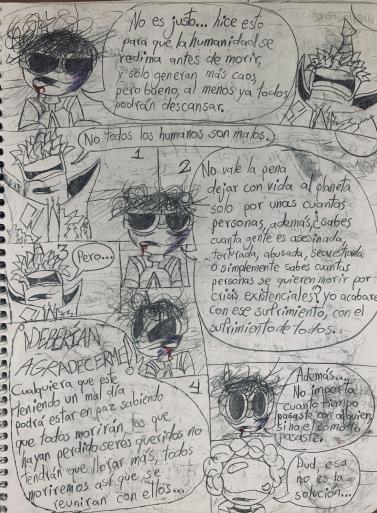 No es justo... hice esto
para que la humanidad se
redima antes de morir,
y solo generan más caos,
pero bueno, al menos ya todos
podrán descansar.
No todos los humanos son malos.
1
2
No vale la pena
dejar con vida al planeta
solo por unas cuantas
personas, además, ¿sabes
cuanta gente es asesinada,
torturada, abusada, secuestrada
o simplemente sabes cuantas
personas se quieren morir por
crisis existenciales? yo acabare
con ese sufrimiento, con el
sufrimiento de todos...
3
Pero...
¡DEBERÍAN
AGRADECERME!
Cualquiera que este
teniendo un mal día
podrá estar en paz sabiendo
que todos morirán, los que
hayan perdido seres queridos no
tendrán que llorar más, todos
moriremos así que se
reuniran con ellos...
4
Además...
No importa
cuanto tiempo
pasaste con alguien,
sino el como lo
pasaste.
Dud, esa
no es la
solución...